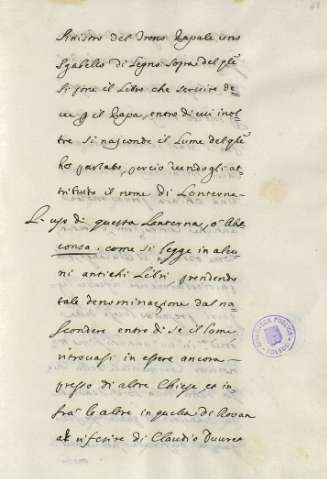 Vicino del Trono Papale uno
Sgabello di Legno sopra del qle
si pone il Libro che servire de-
ve p il Papa, entro di cui inol-
tre si nasconde il Lume del qle
ho parlato, perciò vendogli at-
tribuito il nome di Lanterna-
L'uso di questa Lanterna, o Abs
consa, come si legge in alcu-
ni antichi Libri prendendo
tale denominazione dal na-
scondere entro di se il lume
ritrovasi in essere ancora-
presso di altre Chiese et in
fra le altre in quella di Rovan
al riferire di Claudio Duuret
BIBLIOTECA PUBLICA
TOLEDO